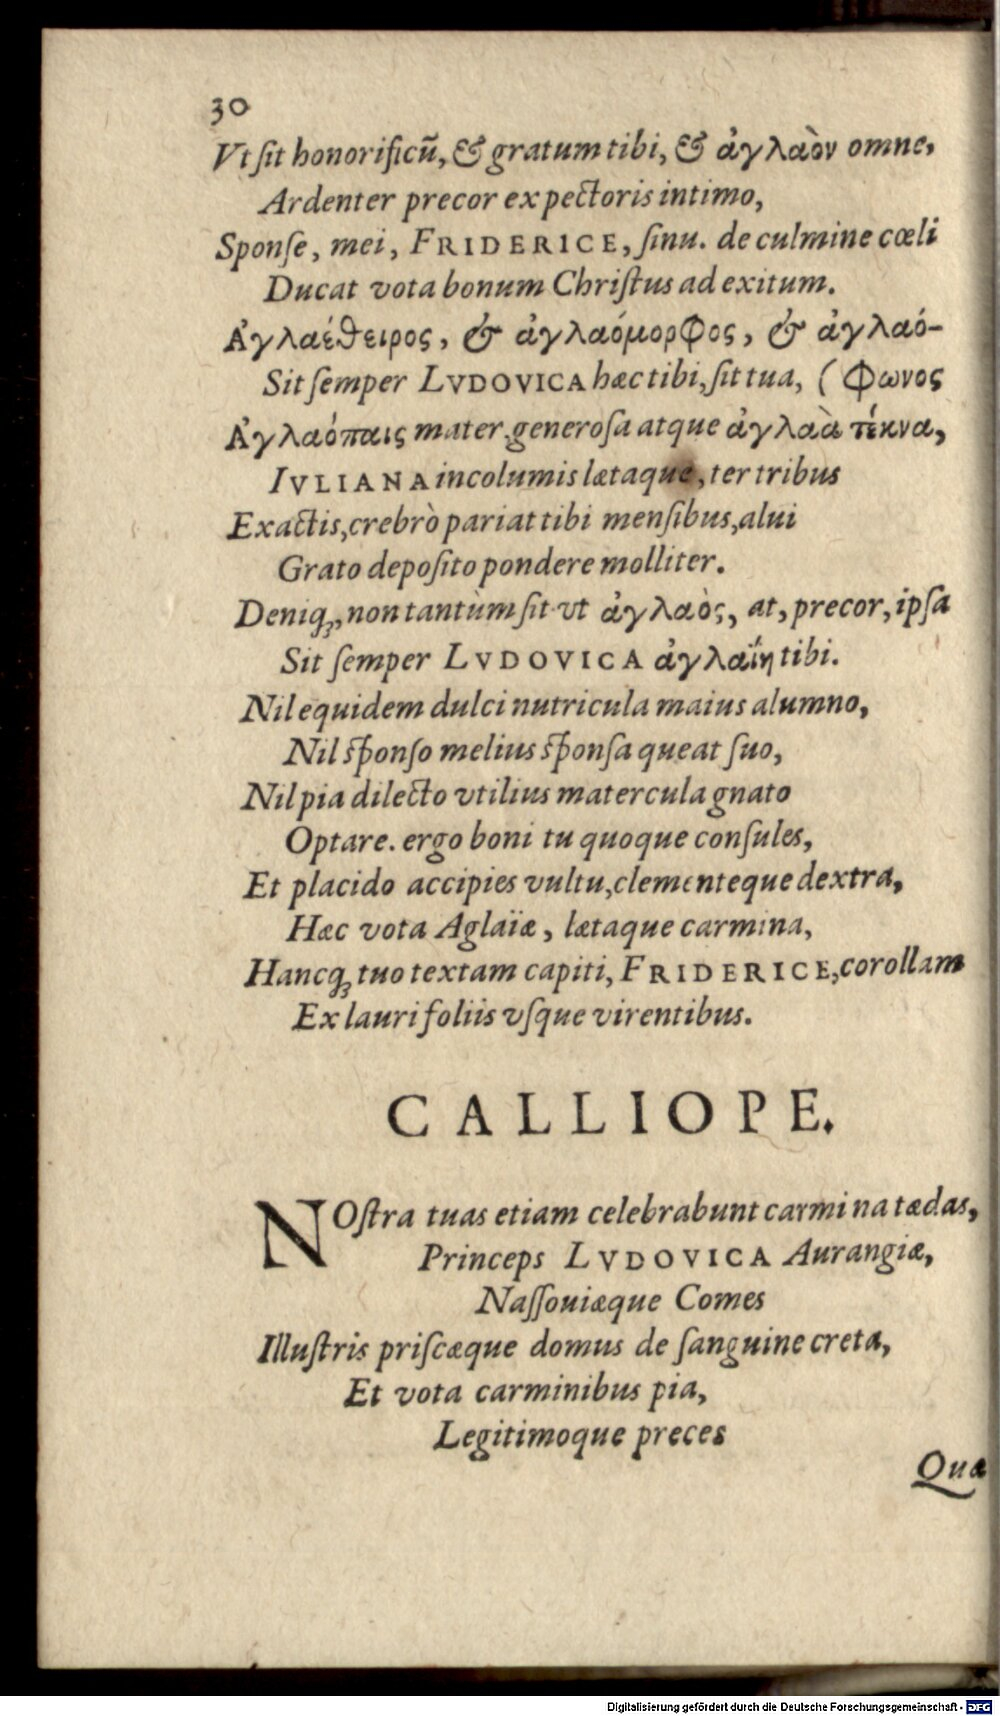 30
Vt ſit honorificũ, & gratum tibi, & ἀγλαὸν omne,
Ardenter precor ex pectoris intimo,
Sponſe, mei, FRIDERICE, ſinu. de culmine cœli
Ducat vota bonum Chriſtus ad exitum.
Ἀγλαέθειρος, & ἀγλαόμορφος, & ἀγλαό-
Sit ſemper LVDOVICA hæc tibi, ſit tua, (φωνος
Ἀγλαόπαις mater generoſa atque ἀγλαὰ τέκνα,
IVLIANA incolumis lætaque, ter tribus
Exactis, crebrò pariat tibi menſibus, alui
Grato depoſito pondere molliter.
Deniq́ꝫ, non tantùm ſit vt ἀγλαὸς, at, precor, ipſa
Sit ſemper LVDOVICA ἀγλαΐη tibi.
Nil equidem dulci nutricula maius alumno,
Nil ſponſo melius ſponſa queat ſuo,
Nil pia dilecto vtilius matercula gnato
Optare. ergo boni tu quoque conſules,
Et placido accipies vultu, clementeque dextra,
Hæc vota Aglaïæ, lætaque carmina,
Hancq́ꝫ tuo textam capiti, FRIDERICE, corollam
Ex lauri foliis vſque virentibus.
CALLIOPE.
NOſtra tuas etiam celebrabunt carmina tædas,
Princeps LVDOVICA Aurangiæ,
Naſſouiæque Comes
Illuſtris priſcæque domus de ſanguine creta,
Et vota carminibus pia,
Legitimoque preces
Quæ
Digitalisierung gefördert durch die Deutsche Forschungsgemeinschaft - DFG